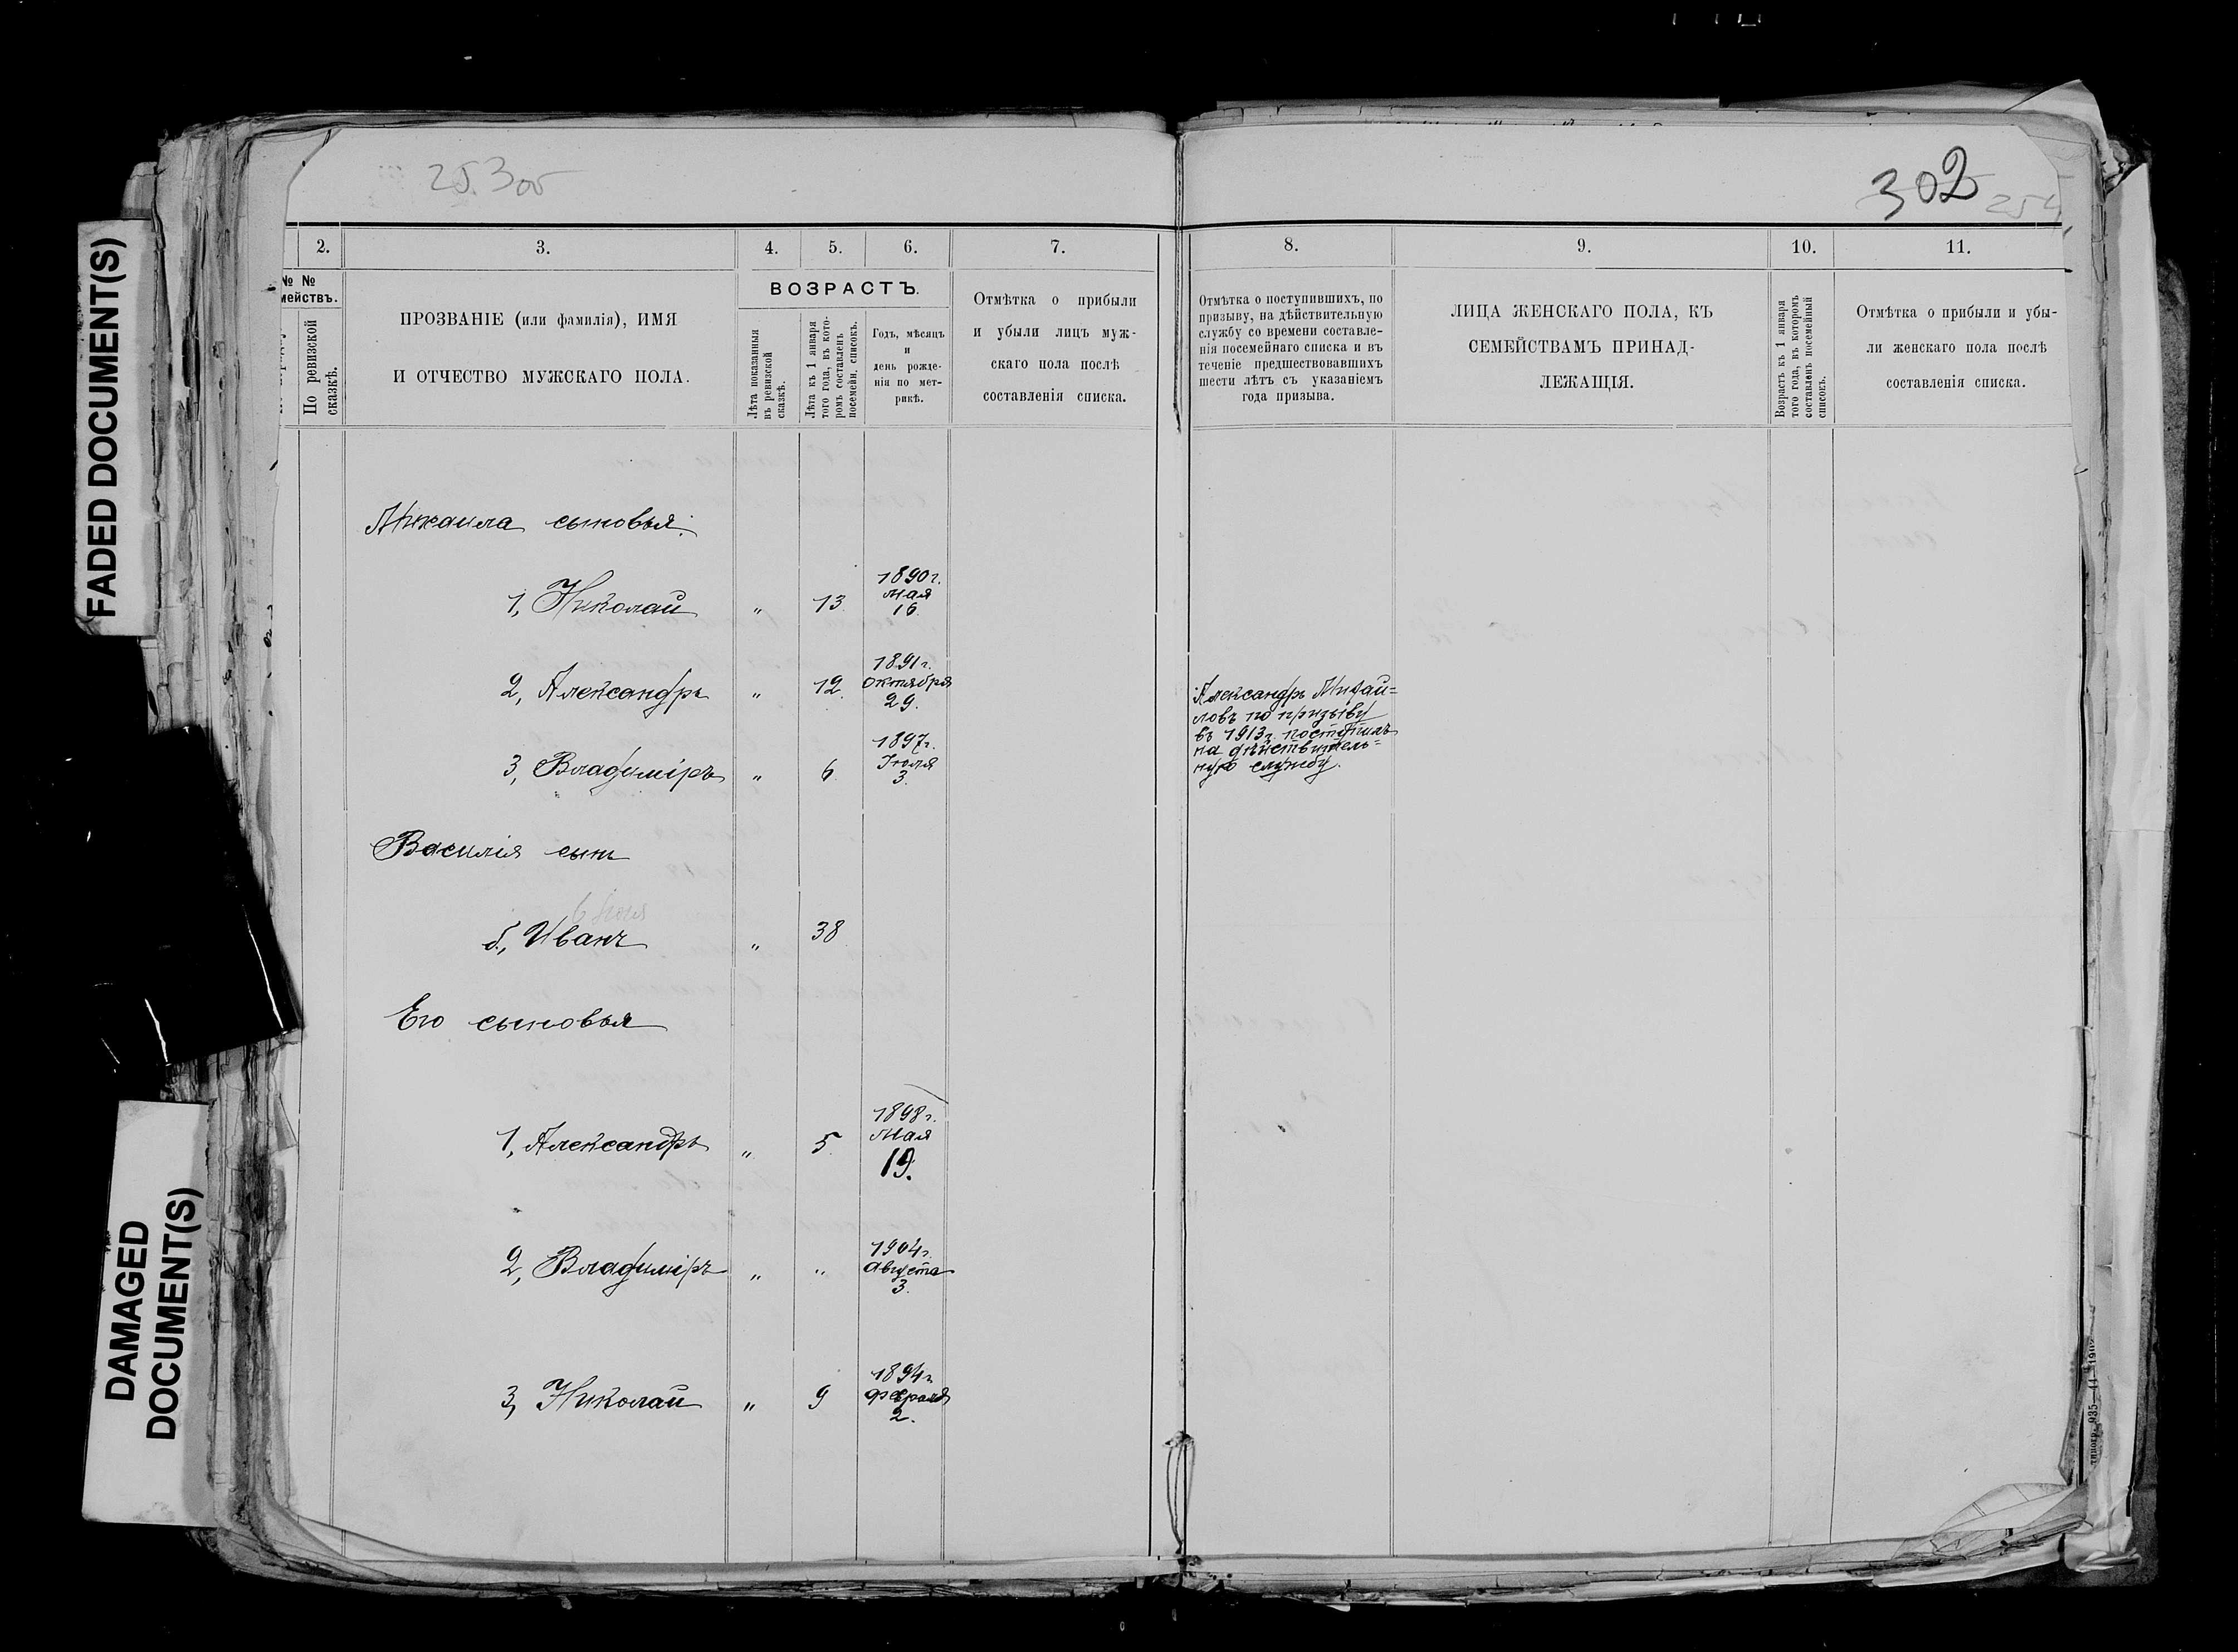 FADED DOCUMENT(S)
DAMAGED
DOCUMENT(S)
302
2.
3.
4.
5.
6.
7.
№ №
По ревизской
сказкѣ.
ПРОЗВАНІЕ (или фамилія), ИМЯ
И ОТЧЕСТВО МУЖСКАГО ПОЛА.
ВОЗРАСТЪ.
Лѣта показанныя
въ ревизской
сказкѣ.
Лѣта къ 1 января
того года, въ кото-
ромъ составленъ
посемейн. списокъ.
Годъ, мѣсяцъ
и
день рожде-
нія по мет-
рикѣ.
Отмѣтка о прибыли
и убыли лицъ муж-
скаго пола послѣ
составленія списка.
Михаила сыновья:
1, Николай " 13 1890 г. Мая 16
2, Александръ " 12. 1891 г. Октября 29.
3, Владиміръ " 6 1897 г. Іюля 3.
Василія сынъ
б., Иванъ " 38
Его сыновья
1, Александръ " 5. 1898 г. Мая 19.
2, Владиміръ " " 1904 г. Августа 3.
3, Николай " 9 1894 г. Февраля 2.
8.
9.
10.
11.
Отмѣтка о поступившихъ, по
призыву, на дѣйствительную
службу со времени составле-
нія посемейнаго списка и въ
теченіе предшествовавшихъ
шести лѣтъ съ указаніемъ
года призыва.
ЛИЦА ЖЕНСКАГО ПОЛА, КЪ
СЕМЕЙСТВАМЪ ПРИНАД-
ЛЕЖАЩІЯ.
Возрастъ къ 1 января
того года, въ которомъ
составленъ посемейный
списокъ.
Отмѣтка о прибыли и убы-
ли женскаго пола послѣ
составленія списка.
Александръ Михай=
ловъ по призыву
въ 1913 г. поступилъ
на дѣйствитель=
ную службу.